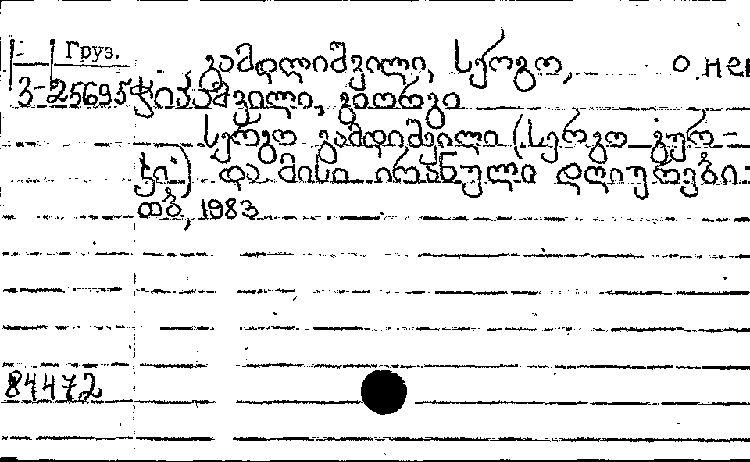 Груз. გამდლიშვილი, სერგო, о нем
3-25695 ჭიპაშვილი, გიორგი
სერგო გამდლიშვილი (სერგო გურ-
ჯი) და მისი ირანული დღიურები.-
თბ, 1983
84472